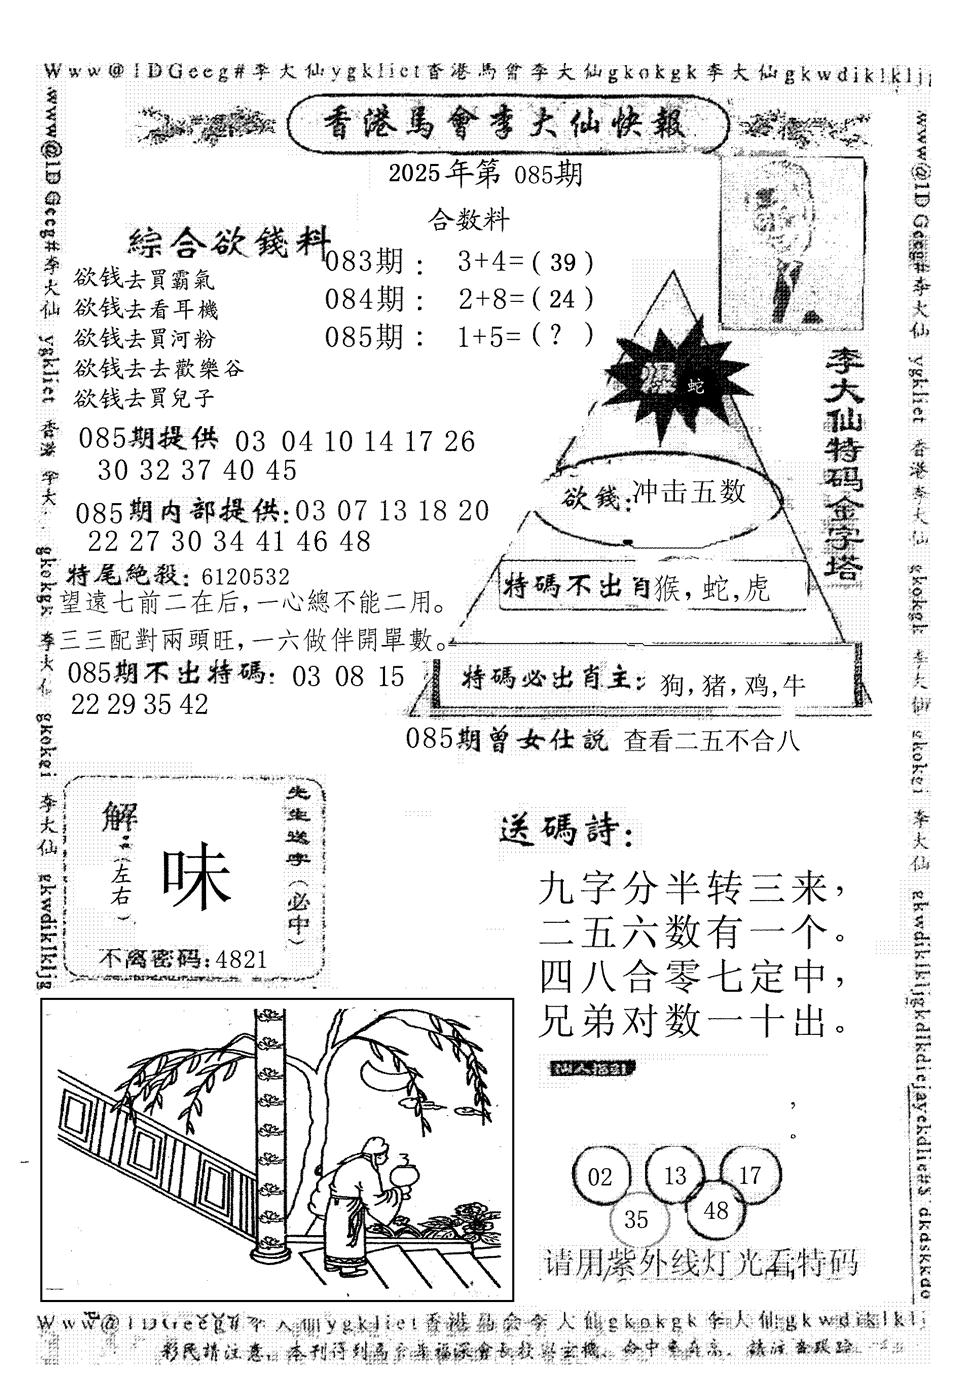 Www@1DGeeg#李大仙ygkliet香港馬會李大仙gkokgk李大仙gkwdiklklj
香港馬會李大仙快報
2025年第 085期
合数料
083期： 3+4=( 39 )
084期： 2+8=( 24 )
085期： 1+5=( ? )
綜合欲錢料
欲钱去買霸氣
欲钱去看耳機
欲钱去買河粉
欲钱去去歡樂谷
欲钱去買兒子
085期提供 03 04 10 14 17 26
30 32 37 40 45
085期内部提供:03 07 13 18 20
22 27 30 34 41 46 48
特尾絶殺: 6120532
望遠七前二在后,一心總不能二用。
三三配對兩頭旺,一六做伴開單數。
085期不出特碼: 03 08 15
22 29 35 42
李大仙特码金字塔
爆 蛇
欲錢:冲击五数
特碼不出肖猴,蛇,虎
特碼必出肖主: 狗,猪,鸡,牛
085期曾女仕説 查看二五不合八
解
(左右)
味
先生送字(必中)
不离密码:4821
送碼詩:
九字分半转三来,
二五六数有一个。
四八合零七定中,
兄弟对数一十出。
仙人指引
,
。
02 13 17
35 48
请用紫外线灯光看特码
Www@1DGeeg#李大仙ygkliet香港馬会李大仙gkokgk李大仙gkwdiklklj